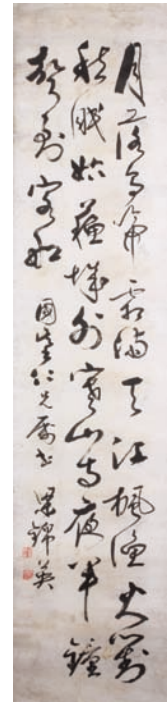 月落烏啼霜滿天江楓漁火對
愁眠姑蘇城外寒山寺夜半鐘
聲到客船 國仁兄屬書 梁錦英